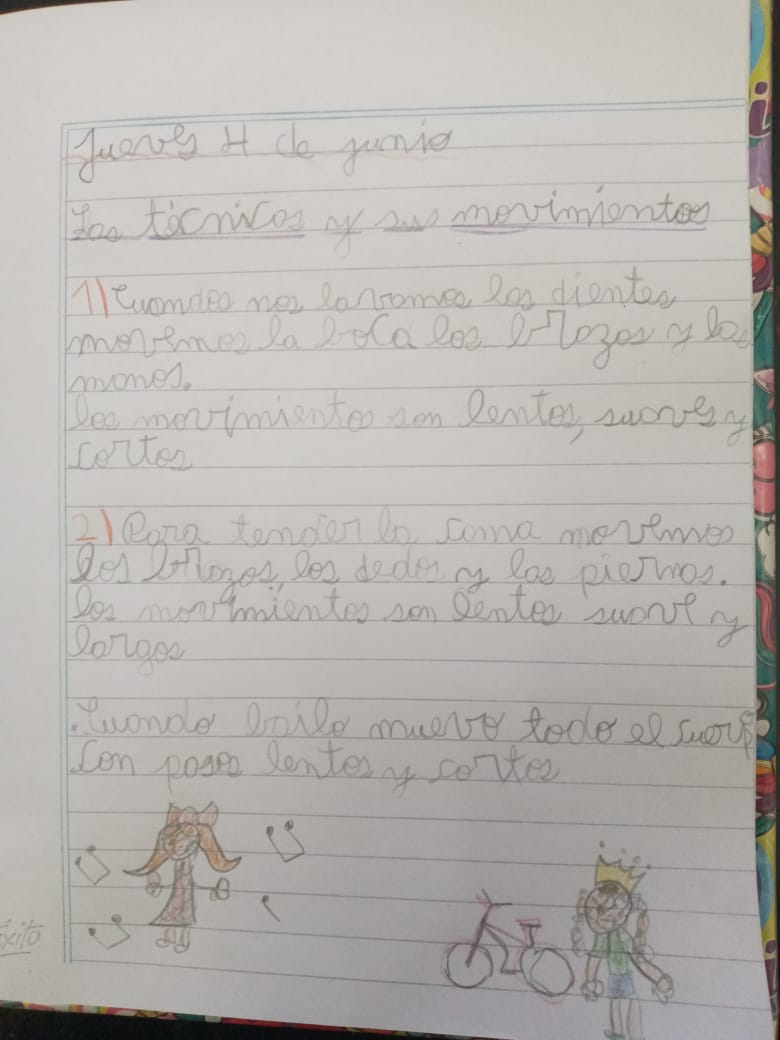 Jueves 4 de junio
Las técnicas y sus movimientos
1) Cuando nos lavamos los dientes
movemos la boca los brazos y las
manos.
los movimientos son lentos, suaves y
cortos
2) Para tender la cama movemos
los brazos, los dedos y las piernas.
los movimientos son lentos suave y
largos
. Cuando bailo muevo todo el cuerp
con pasos lentos y cortos
Éxito